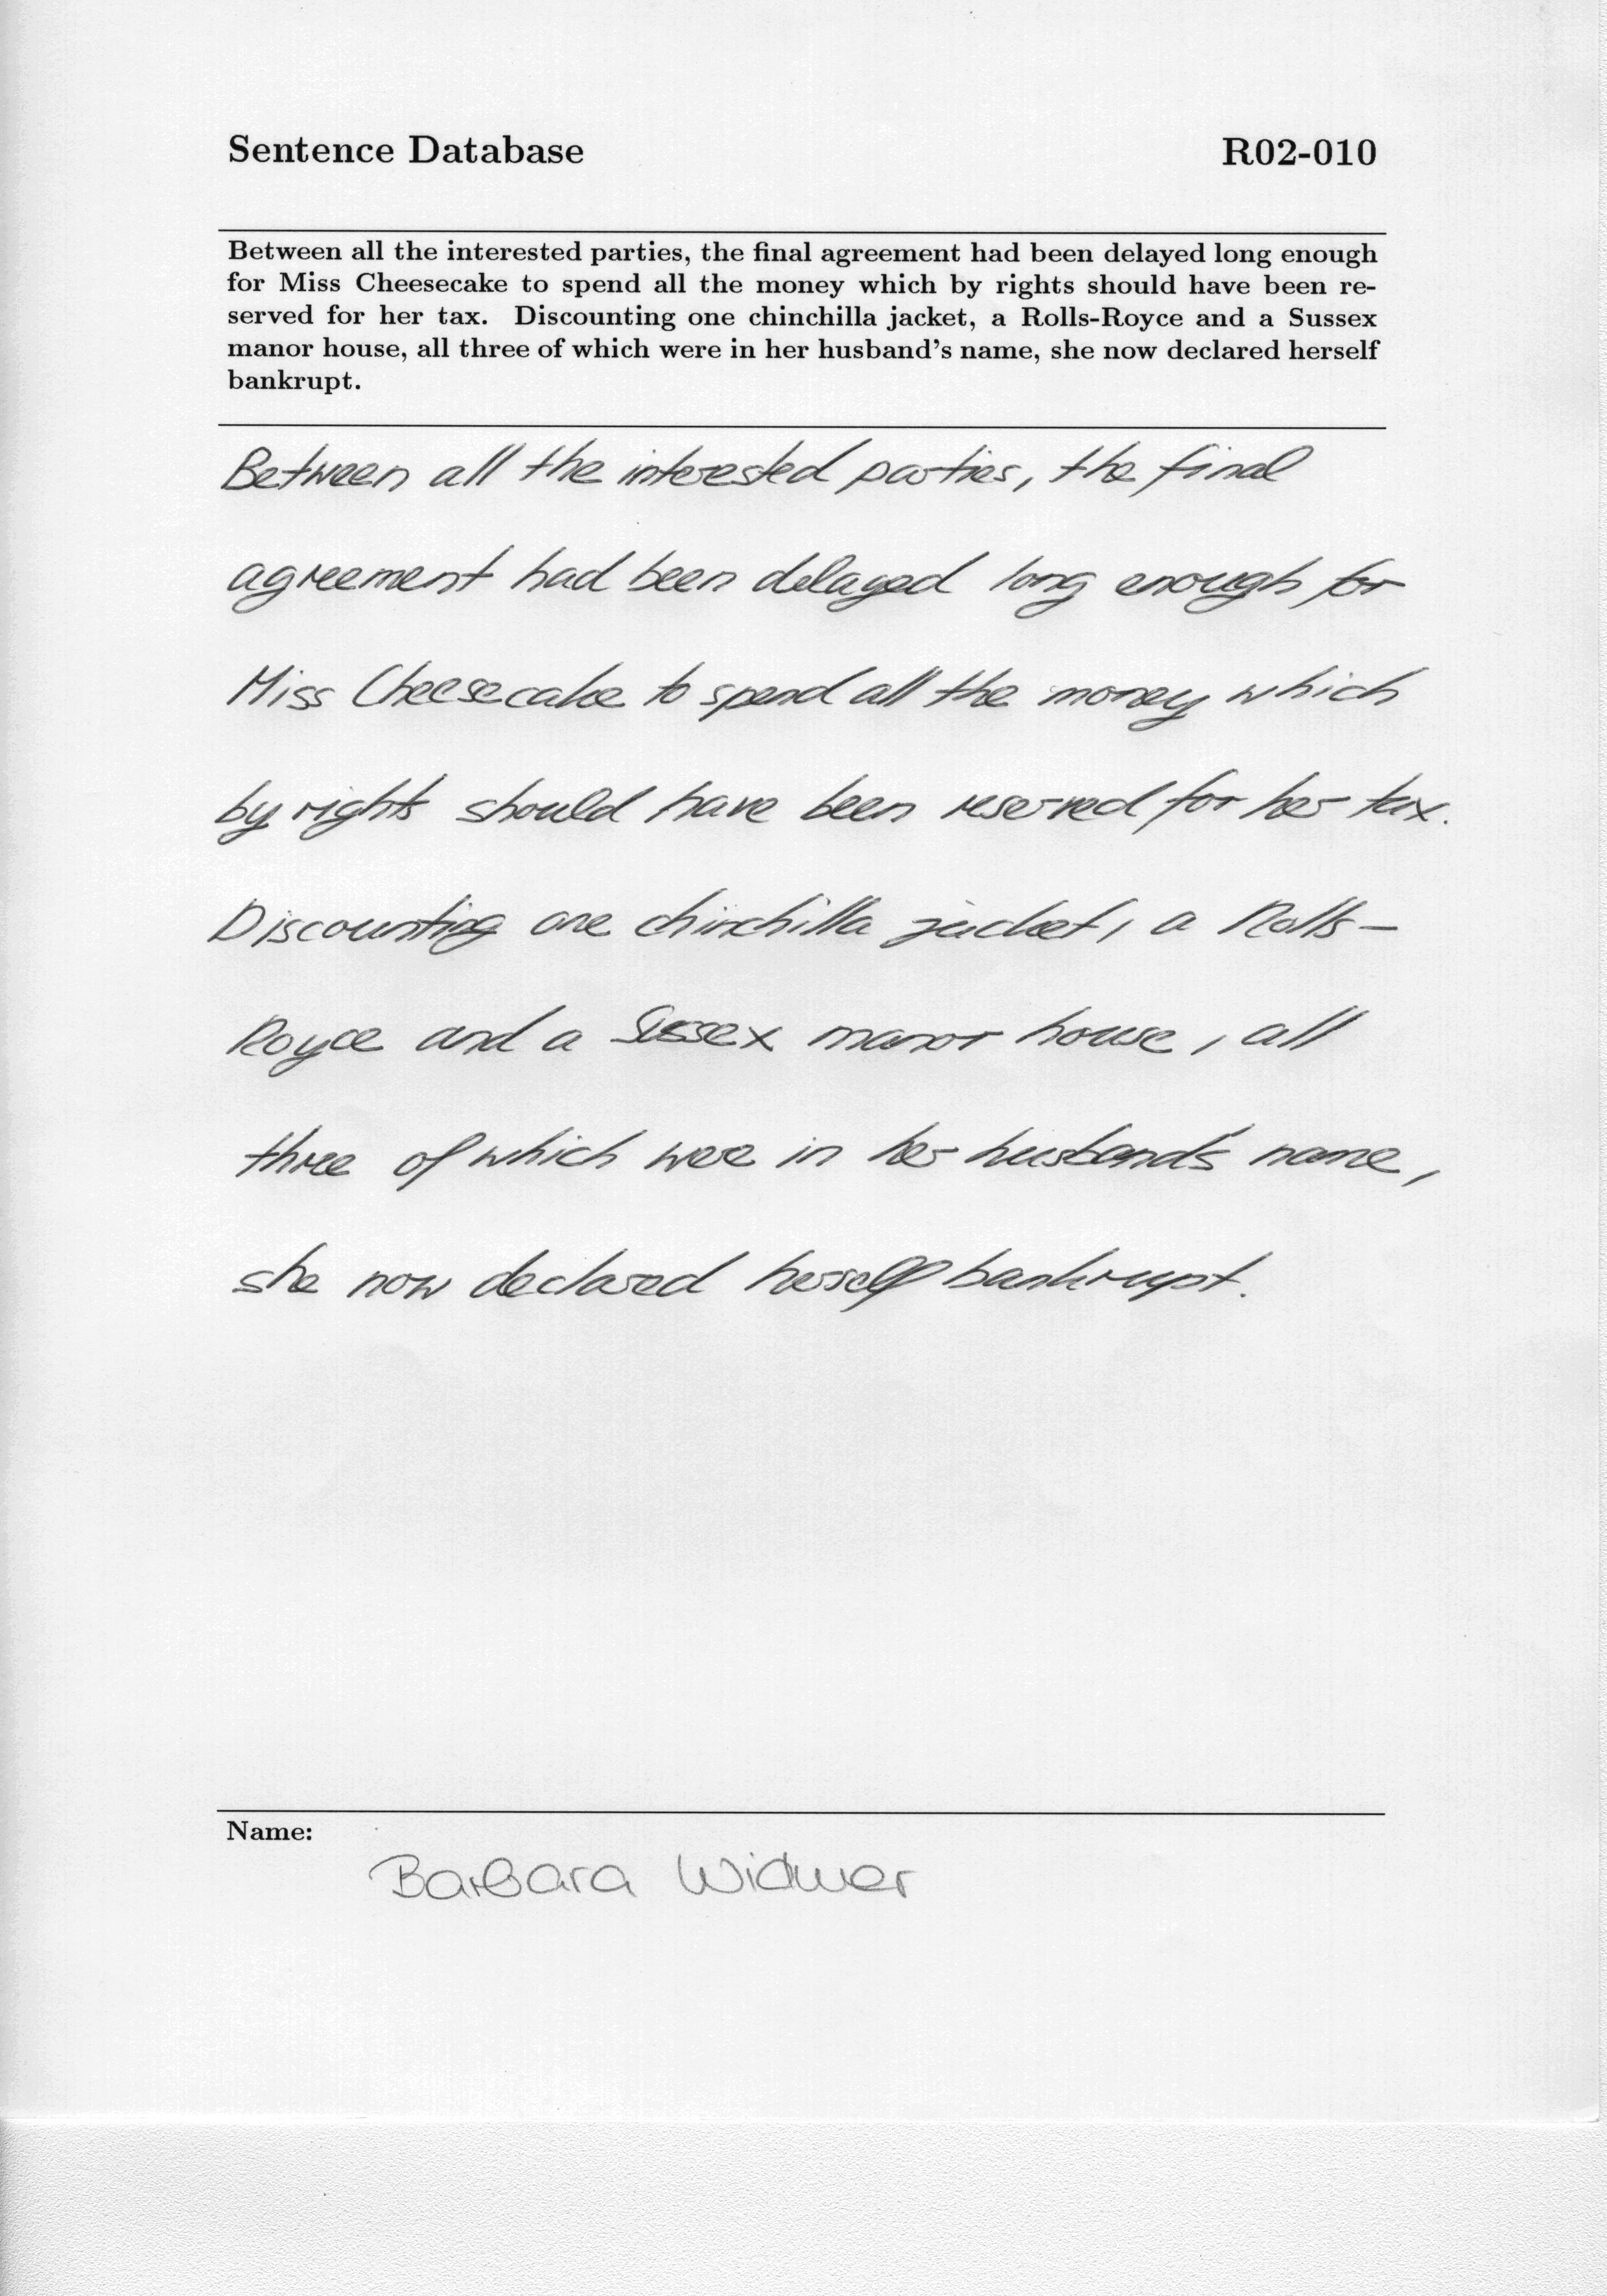 Sentence Database R02-010
Between all the interested parties, the final agreement had been delayed long enough
for Miss Cheesecake to spend all the money which by rights should have been re-
served for her tax. Discounting one chinchilla jacket, a Rolls-Royce and a Sussex
manor house, all three of which were in her husband's name, she now declared herself
bankrupt.
Between all the interested parties, the final
agreement had been delayed long enough for
Miss Cheesecake to spend all the money which
by rights should have been reserved for her tax.
Discounting one chinchilla jacket, a Rolls-
Royce and a Sussex manor house, all
three of which were in her husband's name,
she now declared herself bankrupt.
Name:
Barbara Widmer